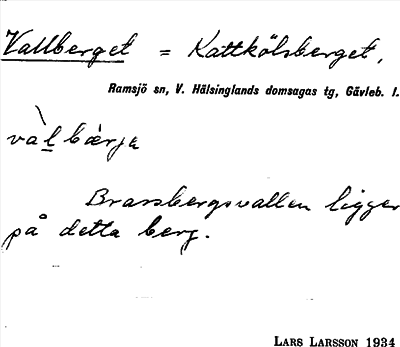 Vallberget = Kattkölsberget,
Ramsjö sn, V. Hälsinglands domsagas tg, Gävleb. l.
vàl bærja
Brarsbergsvallen ligger
på detta berg.
LARS LARSSON 1934